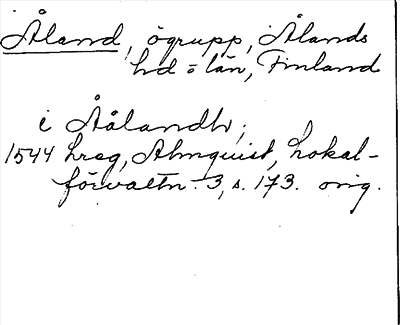 Åland, ögrupp, Ålands
hd o län, Finland
i Åålandh,
1544 hreg, Almquist, Lokal-
förvaltn. 3, s. 173. orig.